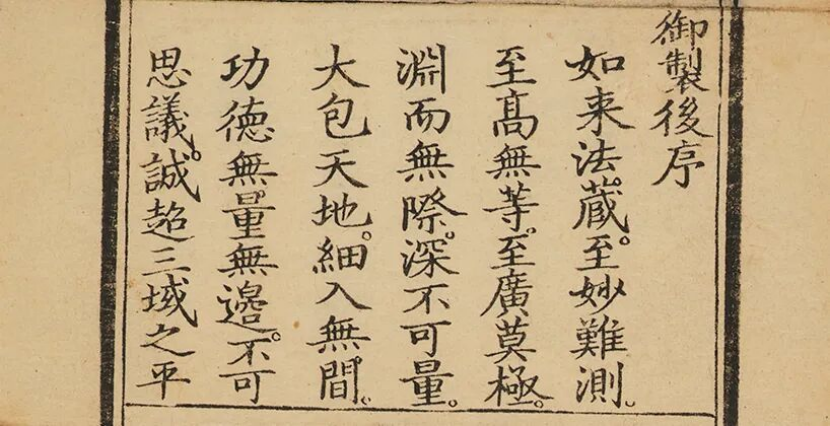 御製後序
如来法藏。至妙難測。
至髙無等。至廣莫極。
淵而無際。深不可量。
大包天地。細入無間。
功德無量無邊。不可
思議。誠超三域之平